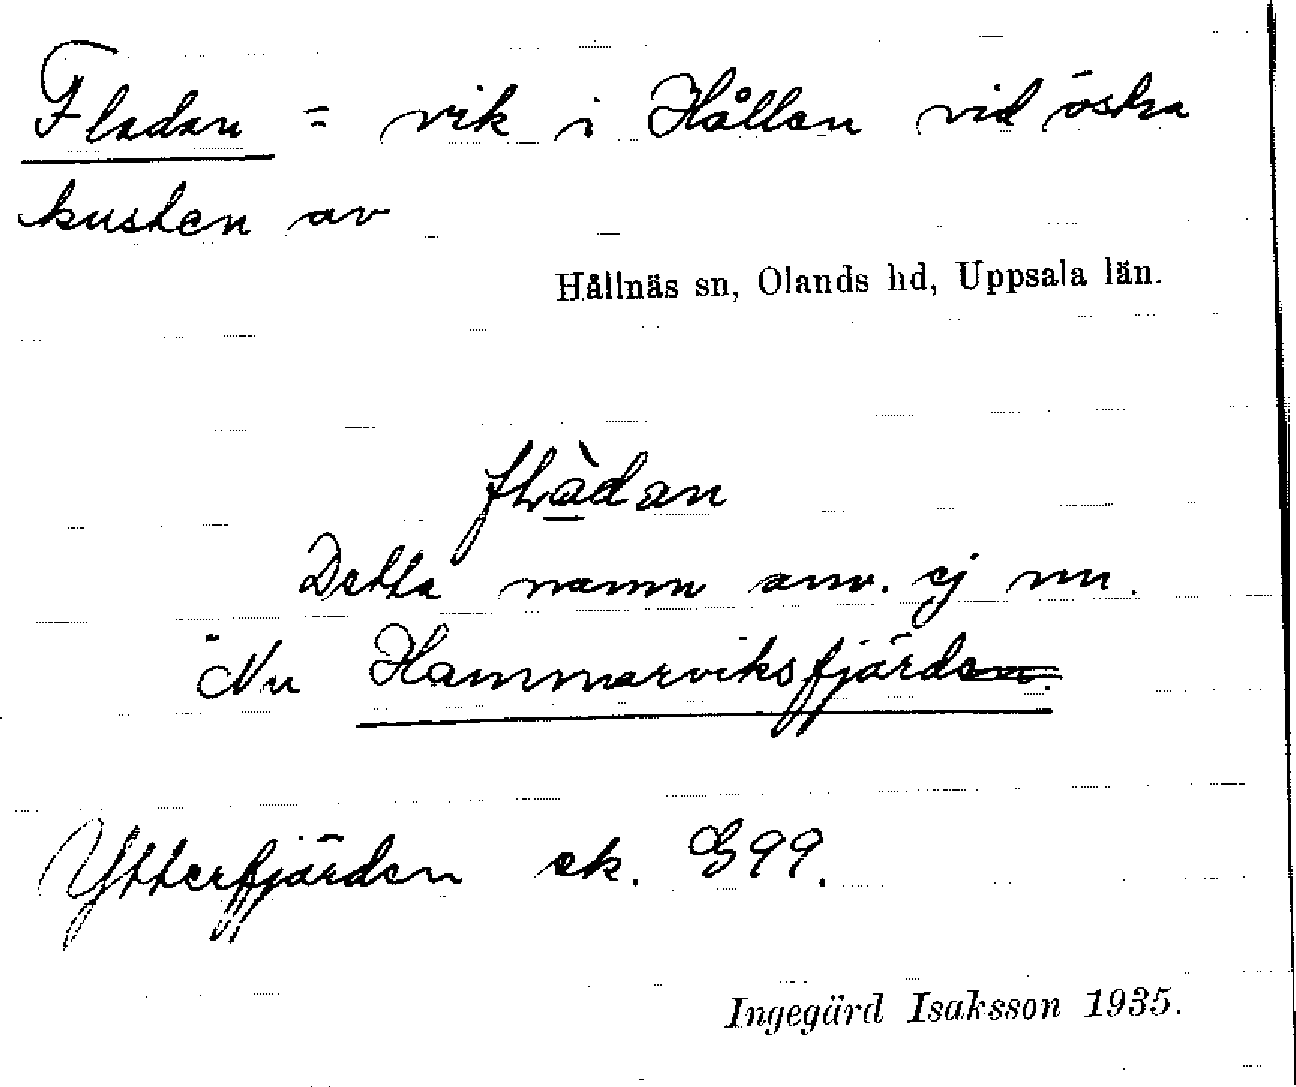 Fladan = vik i Hållen vid östra
kusten av
Hållnäs sn, Olands hd, Uppsala län.
flàdan
Detta namn anv. ej nu.
Nu Hammarviksfjärden.
Ytterfjärden ek. E99.
Ingegärd Isaksson 1935.